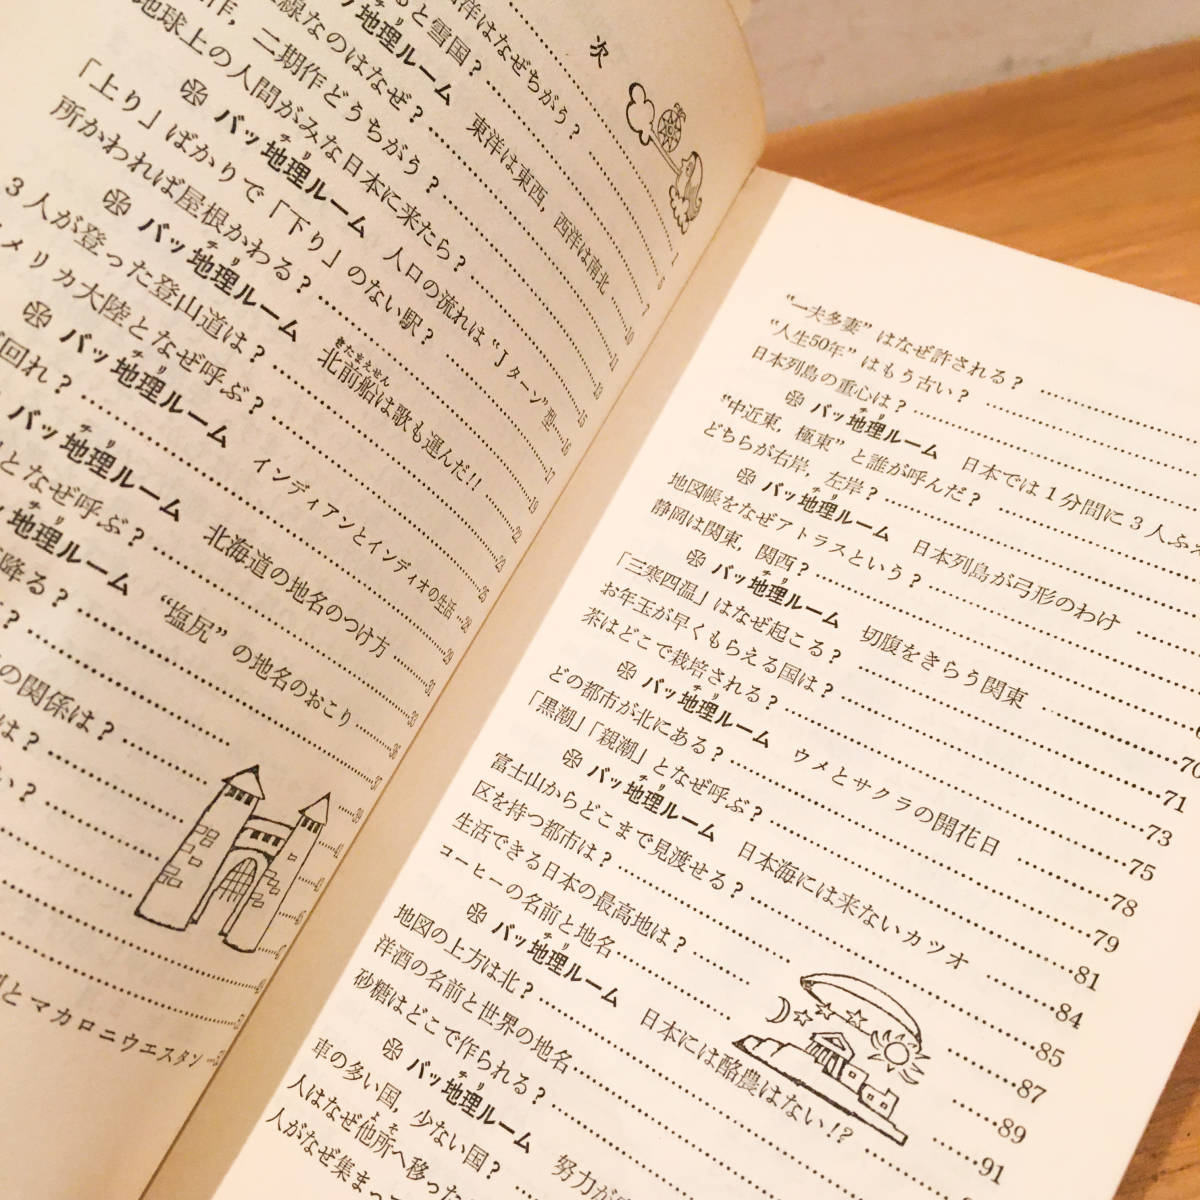 次
洋はなぜちがう？
ると雪国？
地理ルーム 東洋は東西，西洋は南北
線なのはなぜ？
作，二期作どうちがう？
地球上の人間がみな日本に来たら？
バッ地理ルーム 人口の流れは“Jターン”型
「上り」ばかりで「下り」のない駅？
所かわれば屋根かわる？
バッ地理ルーム 北前船は歌も運んだ!!
3人が登った登山道は？
メリカ大陸となぜ呼ぶ？
バッ地理ルーム インディアンとインディオの生活
回れ？
バッ地理ルーム 北海道の地名のつけ方
となぜ呼ぶ？
地理ルーム “塩尻”の地名のおこり
降る？
の関係は？
は？
い？
とマカロニウエスタン
“一夫多妻”はなぜ許される？
“人生50年”はもう古い？
日本列島の重心は？
バッ地理ルーム 日本では1分間に3人ふ
“中近東，極東”と誰が呼んだ？
どちらが右岸，左岸？
バッ地理ルーム 日本列島が弓形のわけ
地図帳をなぜアトラスという？
静岡は関東，関西？
バッ地理ルーム 切腹をきらう関東
「三寒四温」はなぜ起こる？
お年玉が早くもらえる国は？ 70
茶はどこで栽培される？ 71
バッ地理ルーム ウメとサクラの開花日 73
どの都市が北にある？ 75
「黒潮」「親潮」となぜ呼ぶ？ 78
バッ地理ルーム 日本海には来ないカツオ 79
富士山からどこまで見渡せる？ 81
区を持つ都市は？ 84
生活できる日本の最高地は？ 85
コーヒーの名前と地名 87
バッ地理ルーム 日本には酪農はない!? 89
地図の上方は北？ 91
洋酒の名前と世界の地名
砂糖はどこで作られる？
バッ地理ルーム 努力が
車の多い国，少ない国？
人はなぜ他所へ移った
人がなぜ集まって